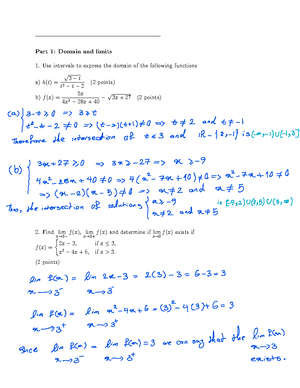 Part 1: Domain and limits
1. Use intervals to express the domain of the following functions
a) h(t) = √(3 − t) / (t² − t − 2) (2 points)
b) f(x) = 5x / (4x² − 28x + 40) − √(3x + 27) (2 points)
(a) { 3-t ≥ 0 => 3 ≥ t
t²-t-2 ≠ 0 => (t-2)(t+1) ≠ 0 => t ≠ 2 and t ≠ -1
Therefore the intersection of t ≤ 3 and IR - {2,-1} is (-∞,-1)∪(-1,
(b) { 3x+27 ≥ 0 => 3x ≥ -27 => x ≥ -9
4x²-28x+40 ≠ 0 => 4(x²-7x+10) ≠ 0 => x²-7x+10 ≠ 0
=> (x-2)(x-5) ≠ 0 => x ≠ 2 and x ≠ 5
Thus, the intersection of solutions { x ≥ -9
x ≠ 2 and x ≠ 5 is [-9,2)∪(2,5)∪(5,∞)
2. Find lim x→3⁻ f(x), lim x→3⁺ f(x) and determine if lim x→3 f(x) exists if
f(x) = { 2x − 3, if x ≤ 3,
x² − 4x + 6, if x > 3.
(2 points)
lim f(x) = lim 2x-3 = 2(3)-3 = 6-3 = 3
x→3⁻ x→3⁻
lim f(x) = lim x²-4x+6 = (3)²-4(3)+6 = 3
x→3⁺ x→3⁺
Since lim f(x) = lim f(x) = 3 we can say that the lim f(x)
x→3⁻ x→3⁺ x→3
exists.